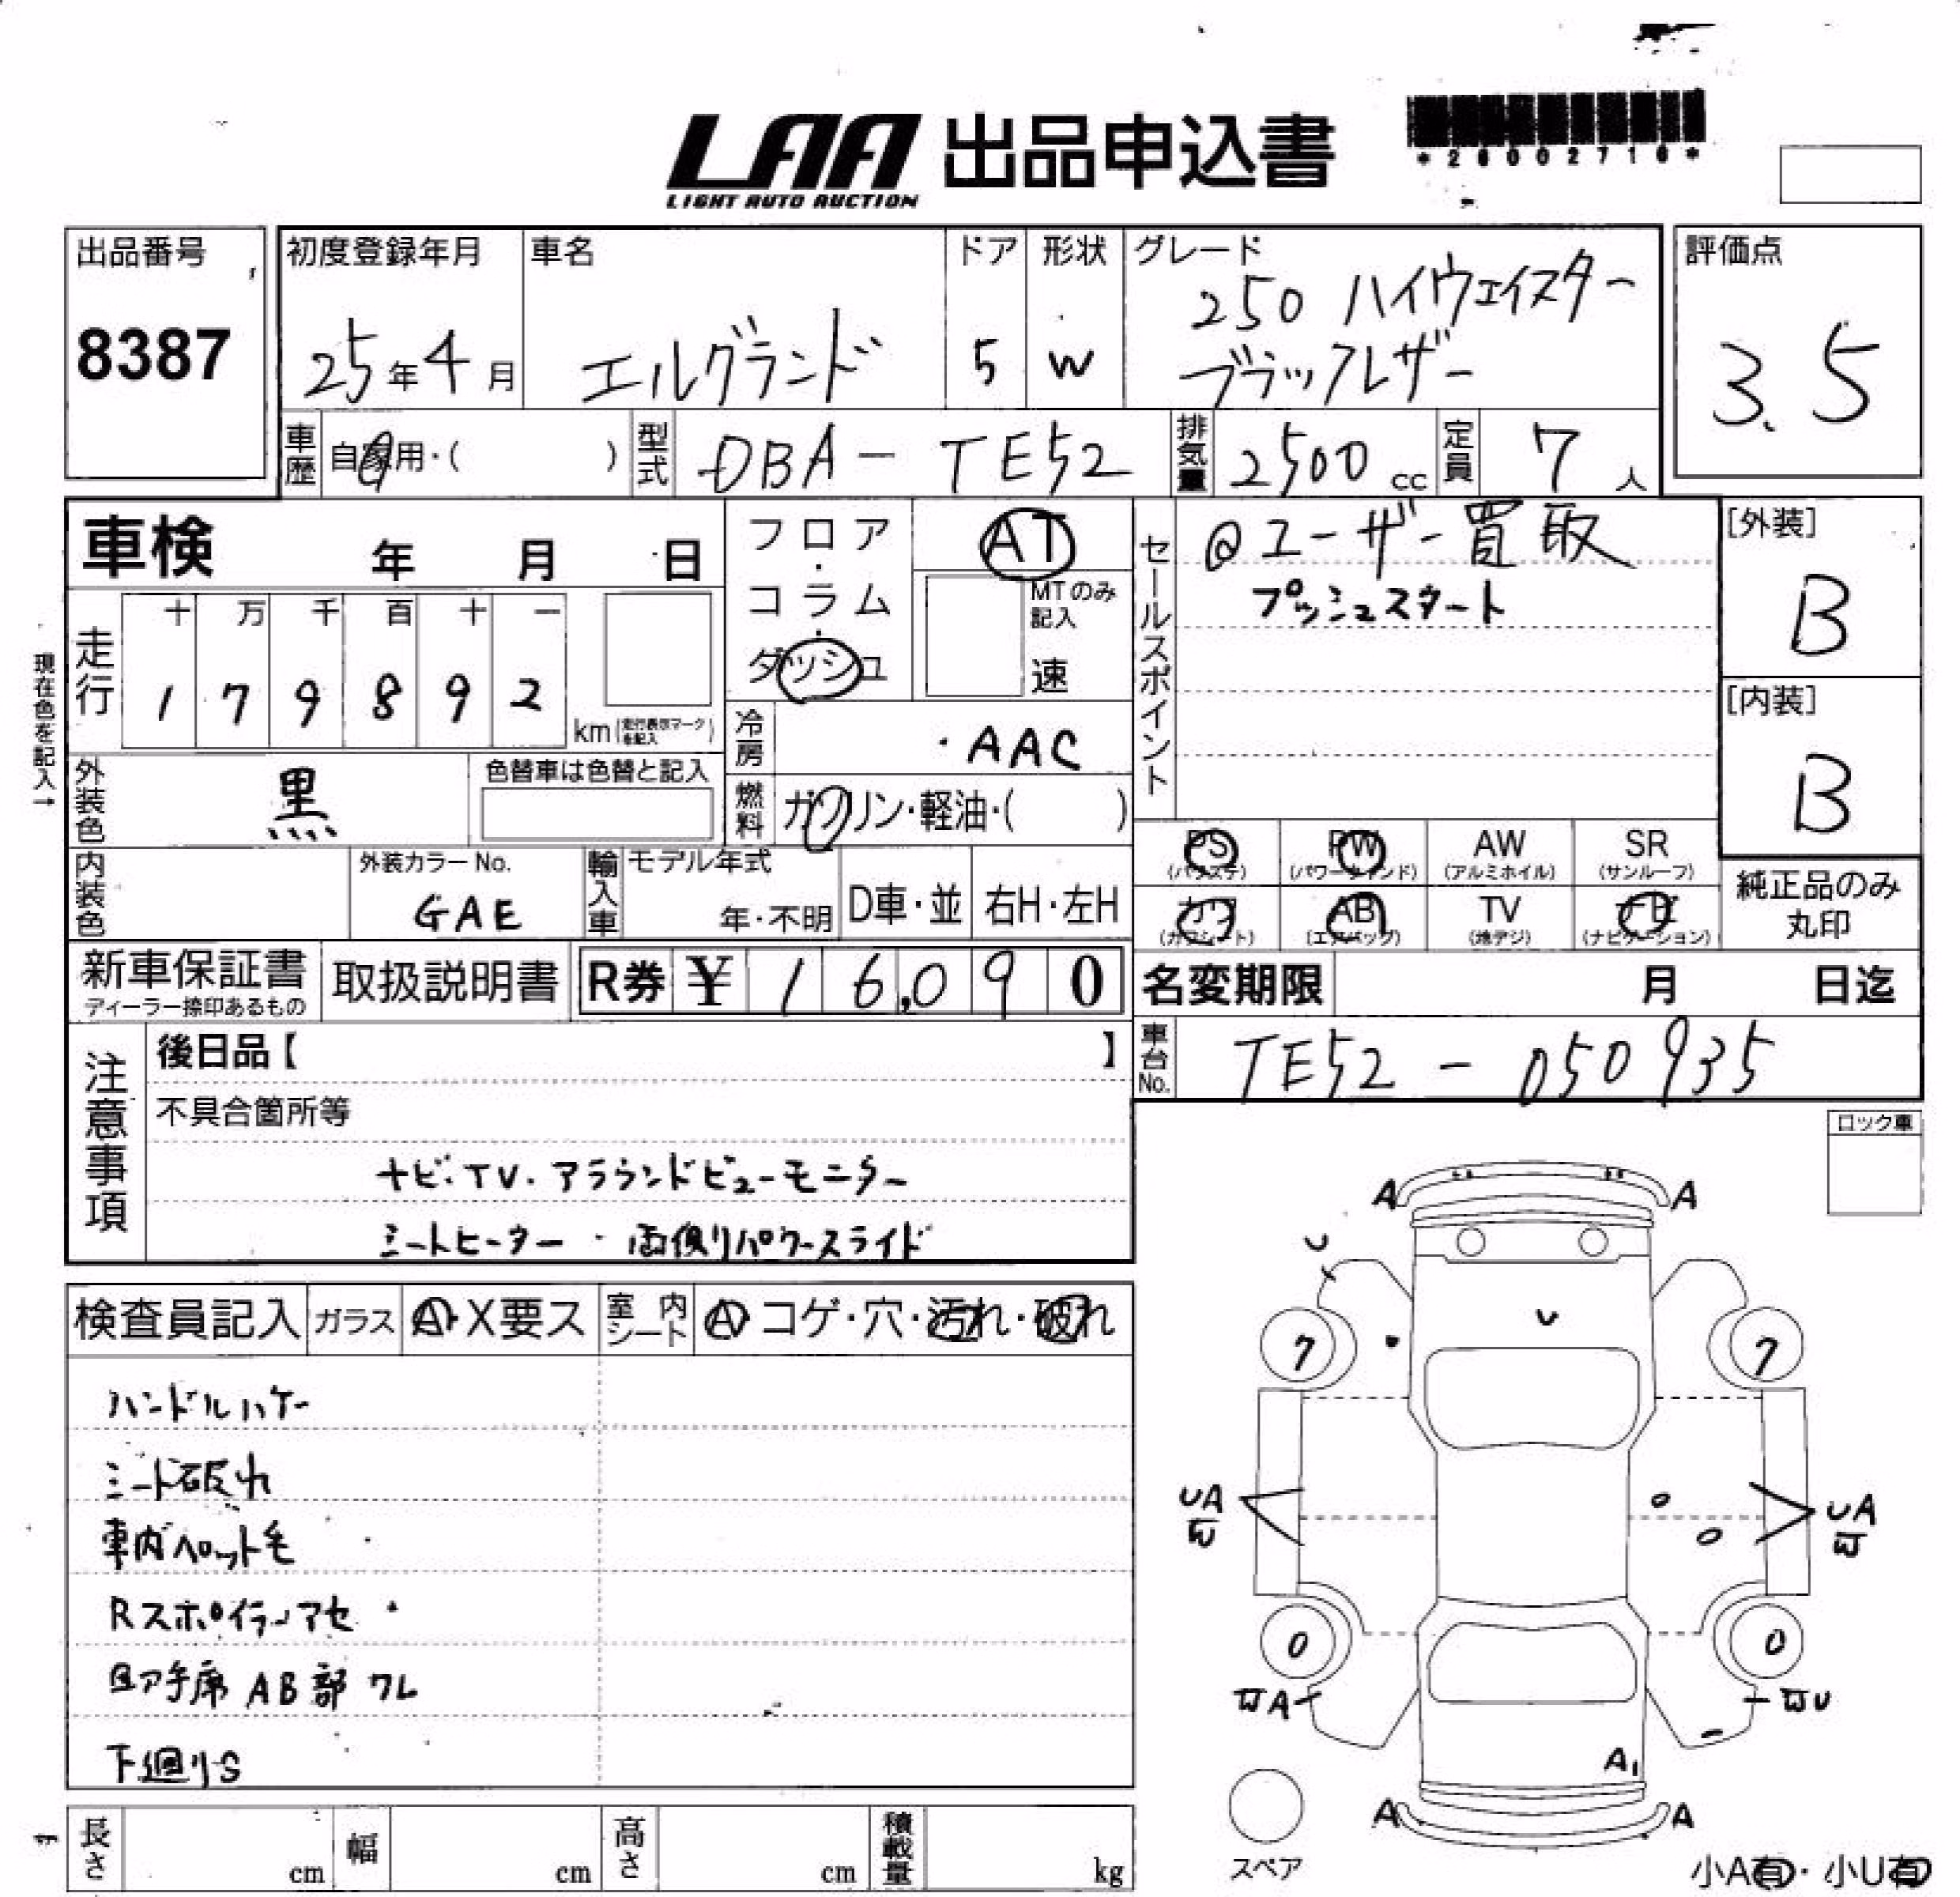 LAA 出品申込書
LIGHT AUTO AUCTION
*26002716*
出品番号
8387
初度登録年月
25年4月
車名
エルグランド
ドア
5
形状
W
グレード
250 ハイウェイスター
ブラックレザー
評価点
3.5
車歴 自家用・( )
型式 DBA-TE52
排気量 2500 cc
定員 7人
車検 年 月 日
フロア・コラム・ダッシュ
AT
MTのみ記入
速
セールスポイント
@ユーザー買取
プッシュスタート
[外装]
B
[内装]
B
現在色を記入→
走行
十 万 千 百 十 一
1 7 9 8 9 2
km(走行表示マークを記入)
冷房 AAC
外装色 黒
色替車は色替と記入
燃料 ガソリン・軽油・( )
PS (パワステ)
PW (パワーウィンド)
AW (アルミホイル)
SR (サンルーフ)
カワ (カワシート)
AB (エアバッグ)
TV (地デジ)
ナビ (ナビゲーション)
純正品のみ
丸印
内装色
外装カラーNo.
GAE
輸入車
モデル年式
年・不明
D車・並
右H・左H
新車保証書
ディーラー捺印あるもの
取扱説明書
R券 ¥ 16,090
名変期限 月 日迄
車台No. TE52-050935
注意事項
後日品【 】
不具合箇所等
ナビ・TV・アラウンドビューモニター
シートヒーター・両側リパワースライド
ロック車
検査員記入
ガラス A・X要ス
室内シート A コゲ・穴・汚れ・破れ
ハンドルハゲ
シート破れ
車内ペット毛
Rスポイラーアセ
助手席AB部ワレ
下廻りS
A A
U
U
7 7
UA
UA
0 0
A
U
A1
A A
スペア
小A有・小U有
長さ cm
幅 cm
高さ cm
積載量 kg